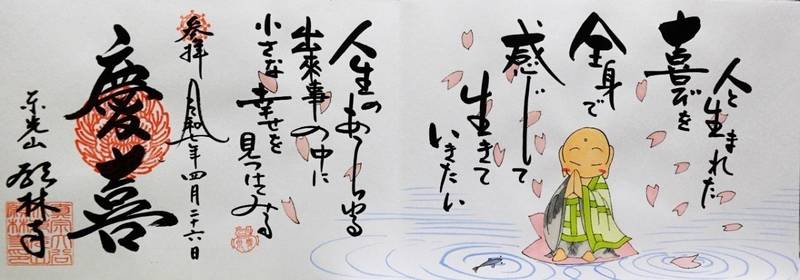 人と生まれた
喜びを
全身で
感じして
生きて
いきたい
人生のあらゆる
出来事の中に
小さな幸せを
見つけてみる
参拝
令和七年四月二十六日
慶喜